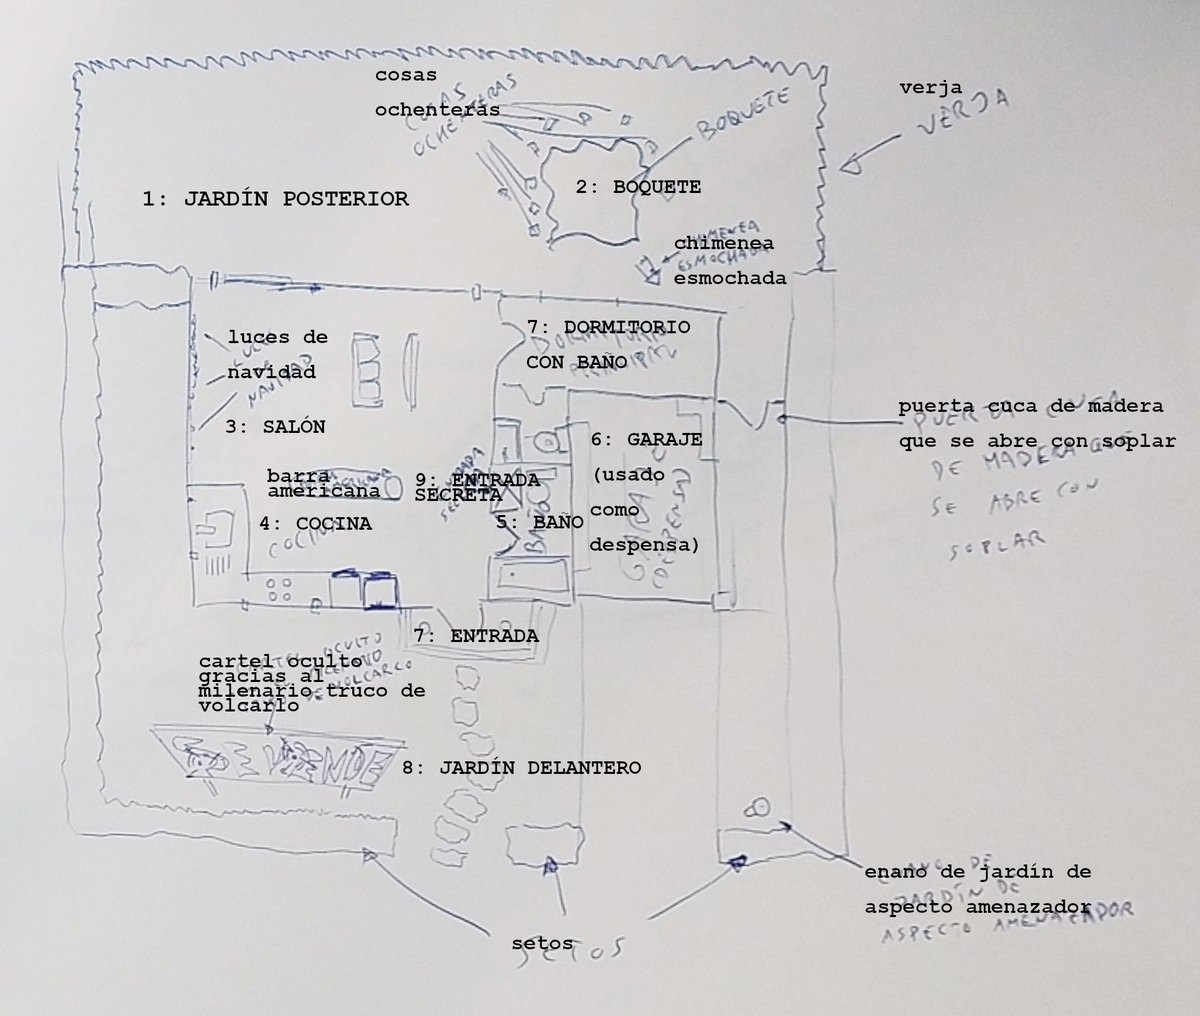 cosas
ochenteras
COSAS
OCHENTERAS
verja
VERJA
BOQUETE
1: JARDÍN POSTERIOR
2: BOQUETE
chimenea
esmochada
CHIMENEA
ESMOCHADA
luces de
navidad
LUCES
DE
NAVIDAD
7: DORMITORIO
CON BAÑO
DORMITORIO
PRINCIPAL
puerta cuca de madera
que se abre con soplar
PUERTA CUCA
DE MADERA QUE
SE ABRE CON
SOPLAR
3: SALÓN
6: GARAJE
(usado
como
despensa)
barra
americana
9: ENTRADA
SECRETA
4: COCINA
COCINA
5: BAÑO
BAÑO
7: ENTRADA
cartel oculto
gracias al
milenario truco de
volcarlo
CARTEL OCULTO
SE VENDE
8: JARDÍN DELANTERO
enano de jardín de
aspecto amenazador
ENANO DE
JARDÍN DE
ASPECTO AMENAZADOR
setos
SETOS